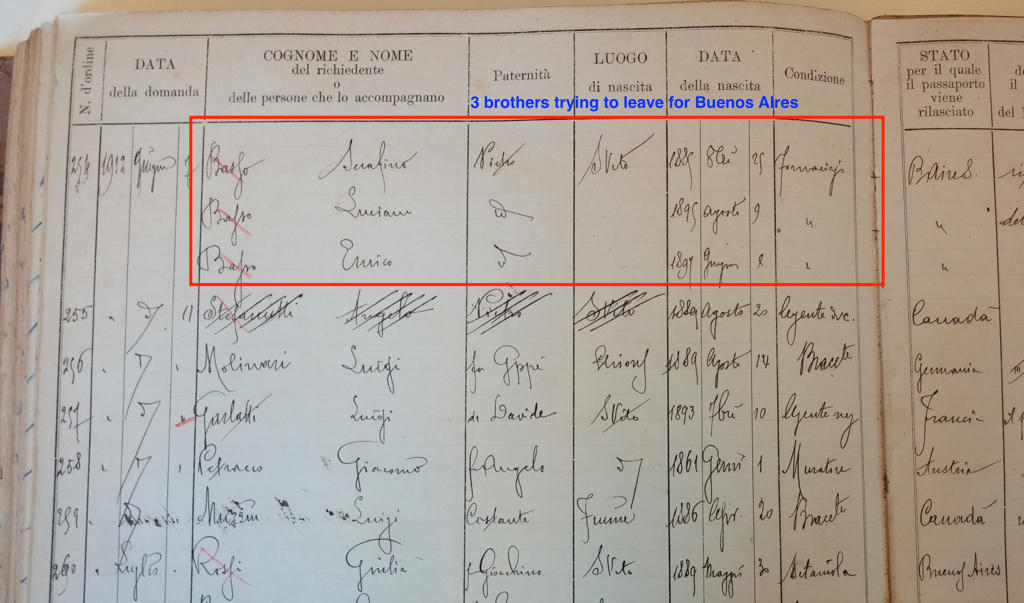 N. d'ordine
DATA
della domanda
COGNOME E NOME
del richiedente
o
delle persone che lo accompagnano
Paternità
LUOGO
di nascita
DATA
della nascita
Condizione
STATO
per il quale
il passaporto
viene
rilasciato
3 brothers trying to leave for Buenos AIres
254 1912 Giugno 7 Basso Serafino Pietro SVito 1889 25 fornaciajo BAires.
Basso Luciano id 1895 Agosto 9 " "
Basso Enrico id 1897 Giugno 8 " "
255 " id 11 Stefanutti Angelo Pietro SVito 1889 Agosto 20 Agente Canadà
256 " id " Molinari Luigi fu Gppe 1889 Agosto 14 Bracete Germania
257 " id " Garlatti Luigi di Davide SVito 1893 7bre 10 Agente Francia
258 " id " Petracco Giacomo f Angelo id 1861 Genn 1 Muratore Austria
259 " Luigi Costante Fiume 1886 20 Bracete Canadà
260 " Luglio " Rossi Giulia f Gioachino SVito 1889 Maggio 30 Setaiola Buenos Aires